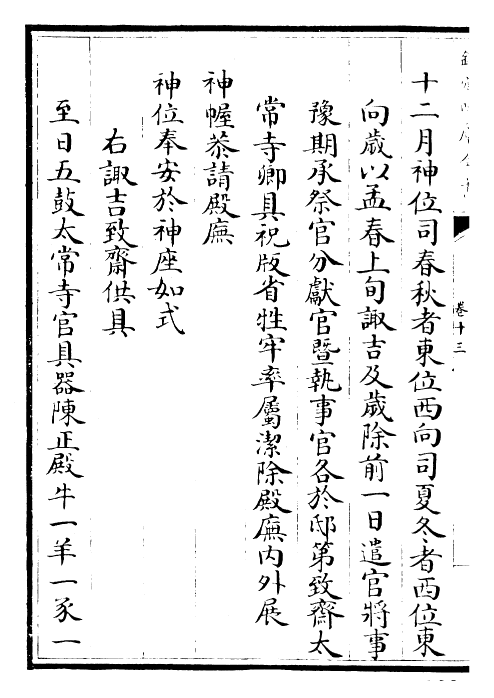 卷十三
十二月神位司春秋者東位西向司夏冬者西位東
向歳以孟春上旬諏吉及歳除前一日遣官將事
豫期承祭官分獻官暨執事官各於邸第致齋太
常寺卿具祝版省牲牢率屬潔除殿廡内外展
神幄恭請殿廡
神位奉安於神座如式
右諏吉致齋供具
至日五鼓太常寺官具器陳正殿牛一羊一豕一